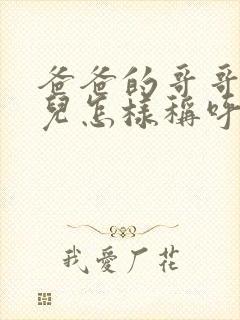 爸爸的哥哥
兒怎樣稱呼
我愛厂花